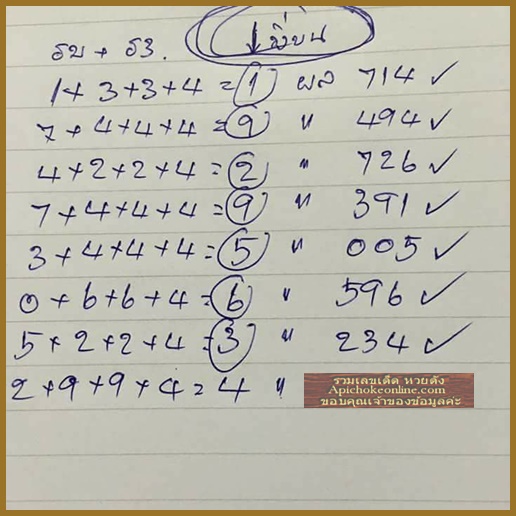 ↓ พี่บน
1+3+3+4=1 ผล 714 ✓
7+4+4+4=9 " 494 ✓
4+2+2+4=2 " 726 ✓
7+4+4+4=9 " 391 ✓
3+4+4+4=5 " 005 ✓
0+6+6+4=6 " 596 ✓
5+2+2+4=3 " 234 ✓
2+9+9+4=4 "
รวมเลขเด็ด หวยดัง
Apichokeonline.com
ขอบคุณเจ้าของข้อมูลค่ะ